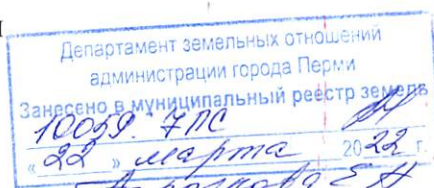 Департамент земельных отношений
администрации города Перми
Занесено в муниципальный реестр земель
10059. 7ПС
« 22 » марта 2022 г.